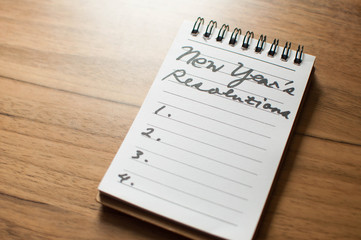 New Year's
Resolutions
1.
2.
3.
4.